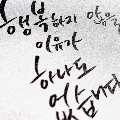 행복하지 않을
이유가
하나도
없습니다